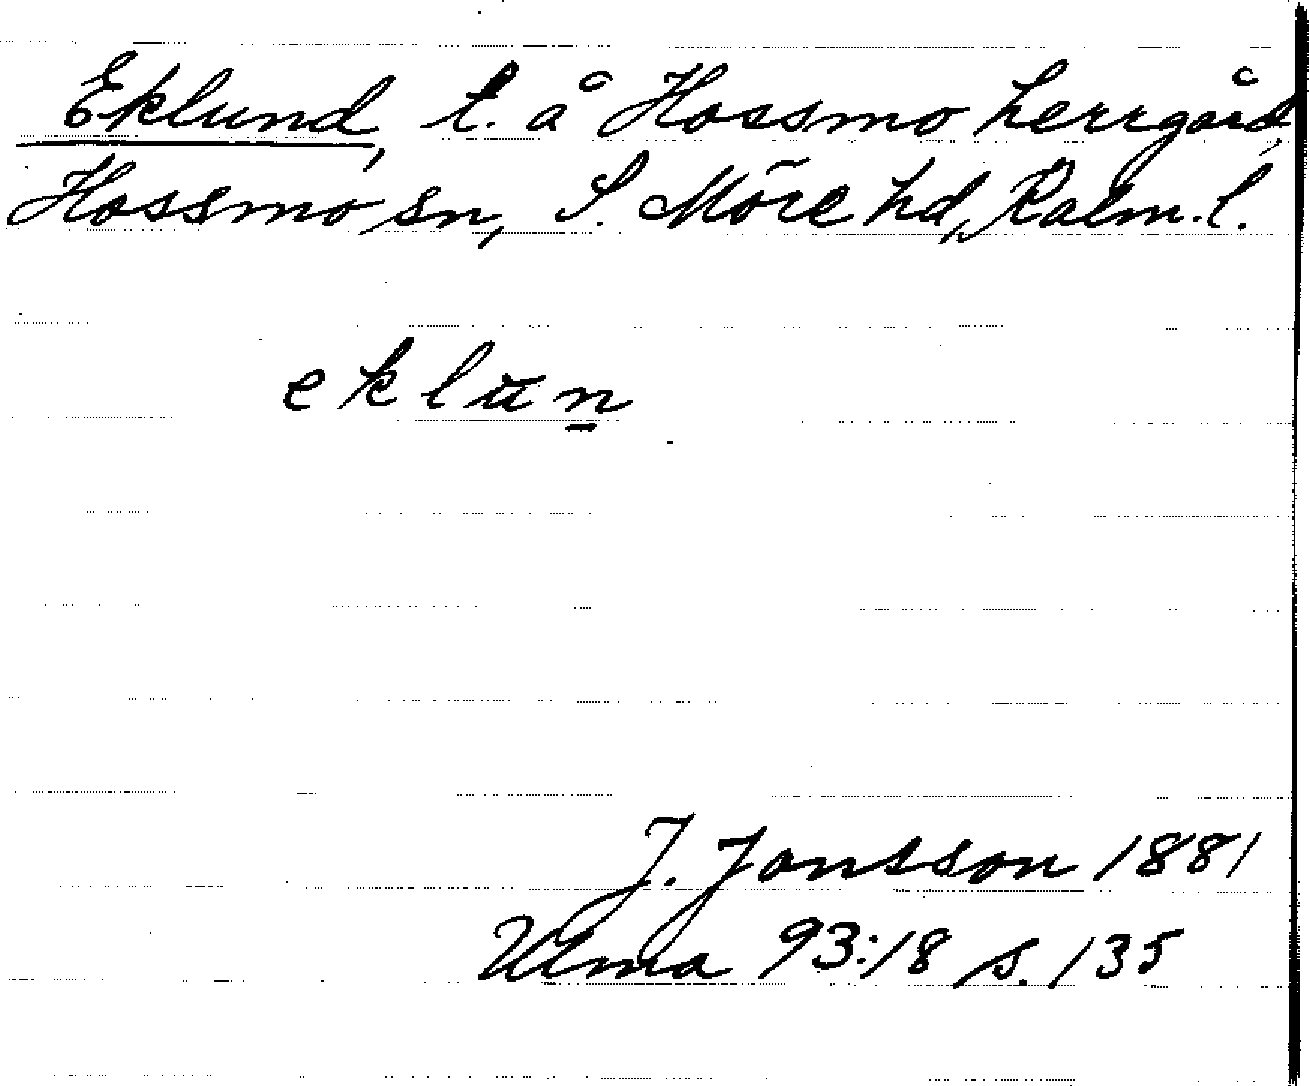 Eklund, t. å Hossmo herrgård,
Hossmo sn, S. Möre hd, Kalm. l.
eklūn̲
J. Jonsson 1881
Ulma 93:18 s. 135